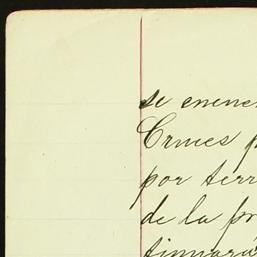 se encue
Cruces p
por terr
de la pr
tinuará